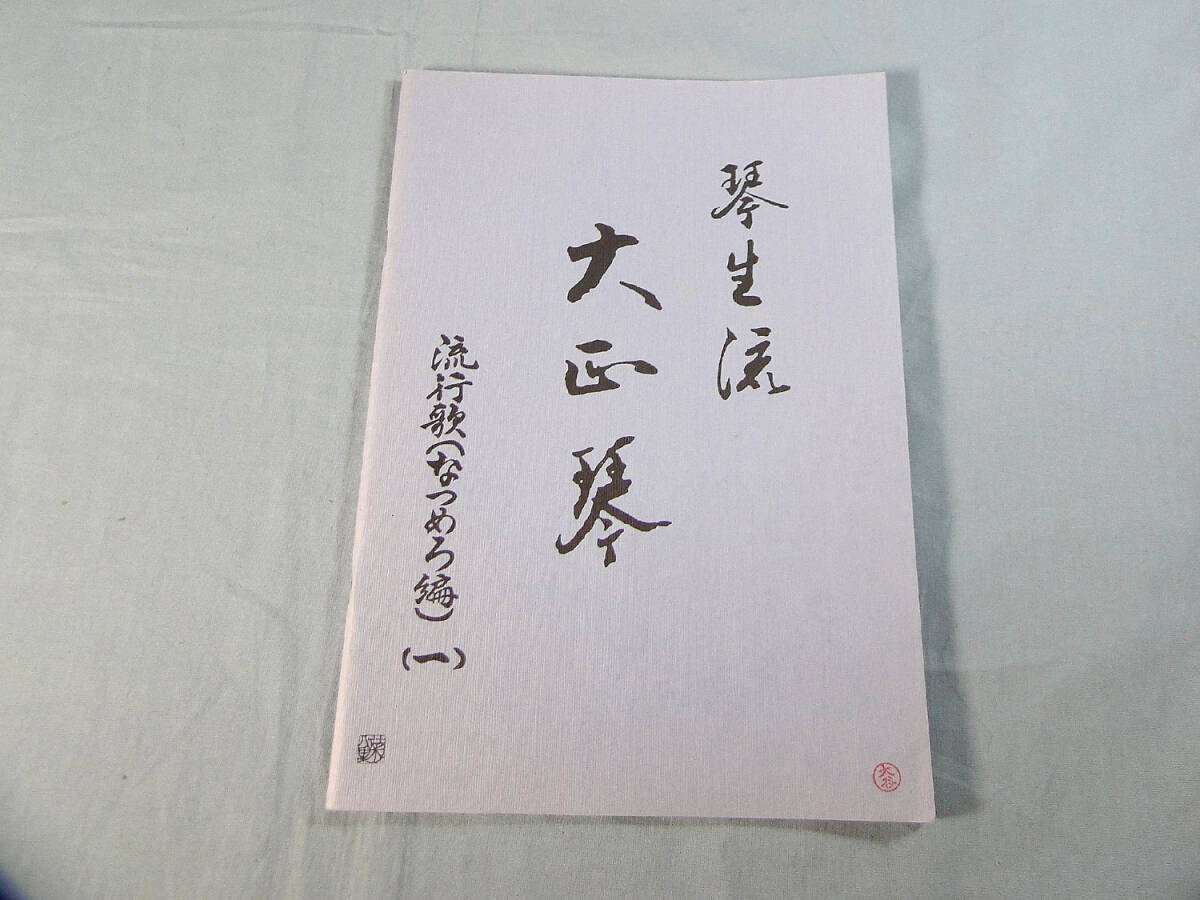 琴生流
大正琴
流行歌(なつめろ編)
(一)
大谷